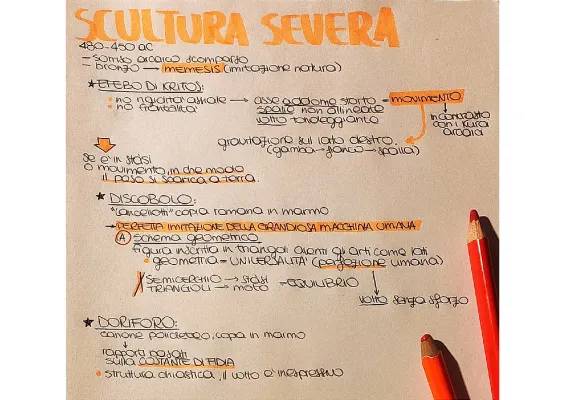 SCULTURA SEVERA
480-450 aC
- sorriso arcaico scomparso
- bronzo → MEMESIS (imitazione natura)
★ EFEBO DI KRITOS:
• no rigidità assiale → asse addome storto = MOVIMENTO
• no frontalità spalle non allineate
volto tondeggiante
in contrasto
con i kura
arcaia
gravitazione sul lato destro,
(gamba → fianco → spalla)
se è in stasi
o movimento, in che modo
il peso si scarica a terra.
★ DISCOBOLO:
"Lancellotti" copia romana in marmo
→ PERFETTA IMITAZIONE DELLA GRANDIOSA MACCHINA UMANA
A schema geometrico
figura inserita in triangoli aventi gli arti come lati
• geometria = UNIVERSALITA' (perfezione umana)
SEMICERCHIO → stasi
TRIANGOLI → moto = EQUILIBRIO
volto senza sforzo
★ DORIFORO:
canone policleteo, copia in marmo
rapporti basati
sulla COSTANTE DI FIDIA
• struttura chiastica, il volto è inespressivo